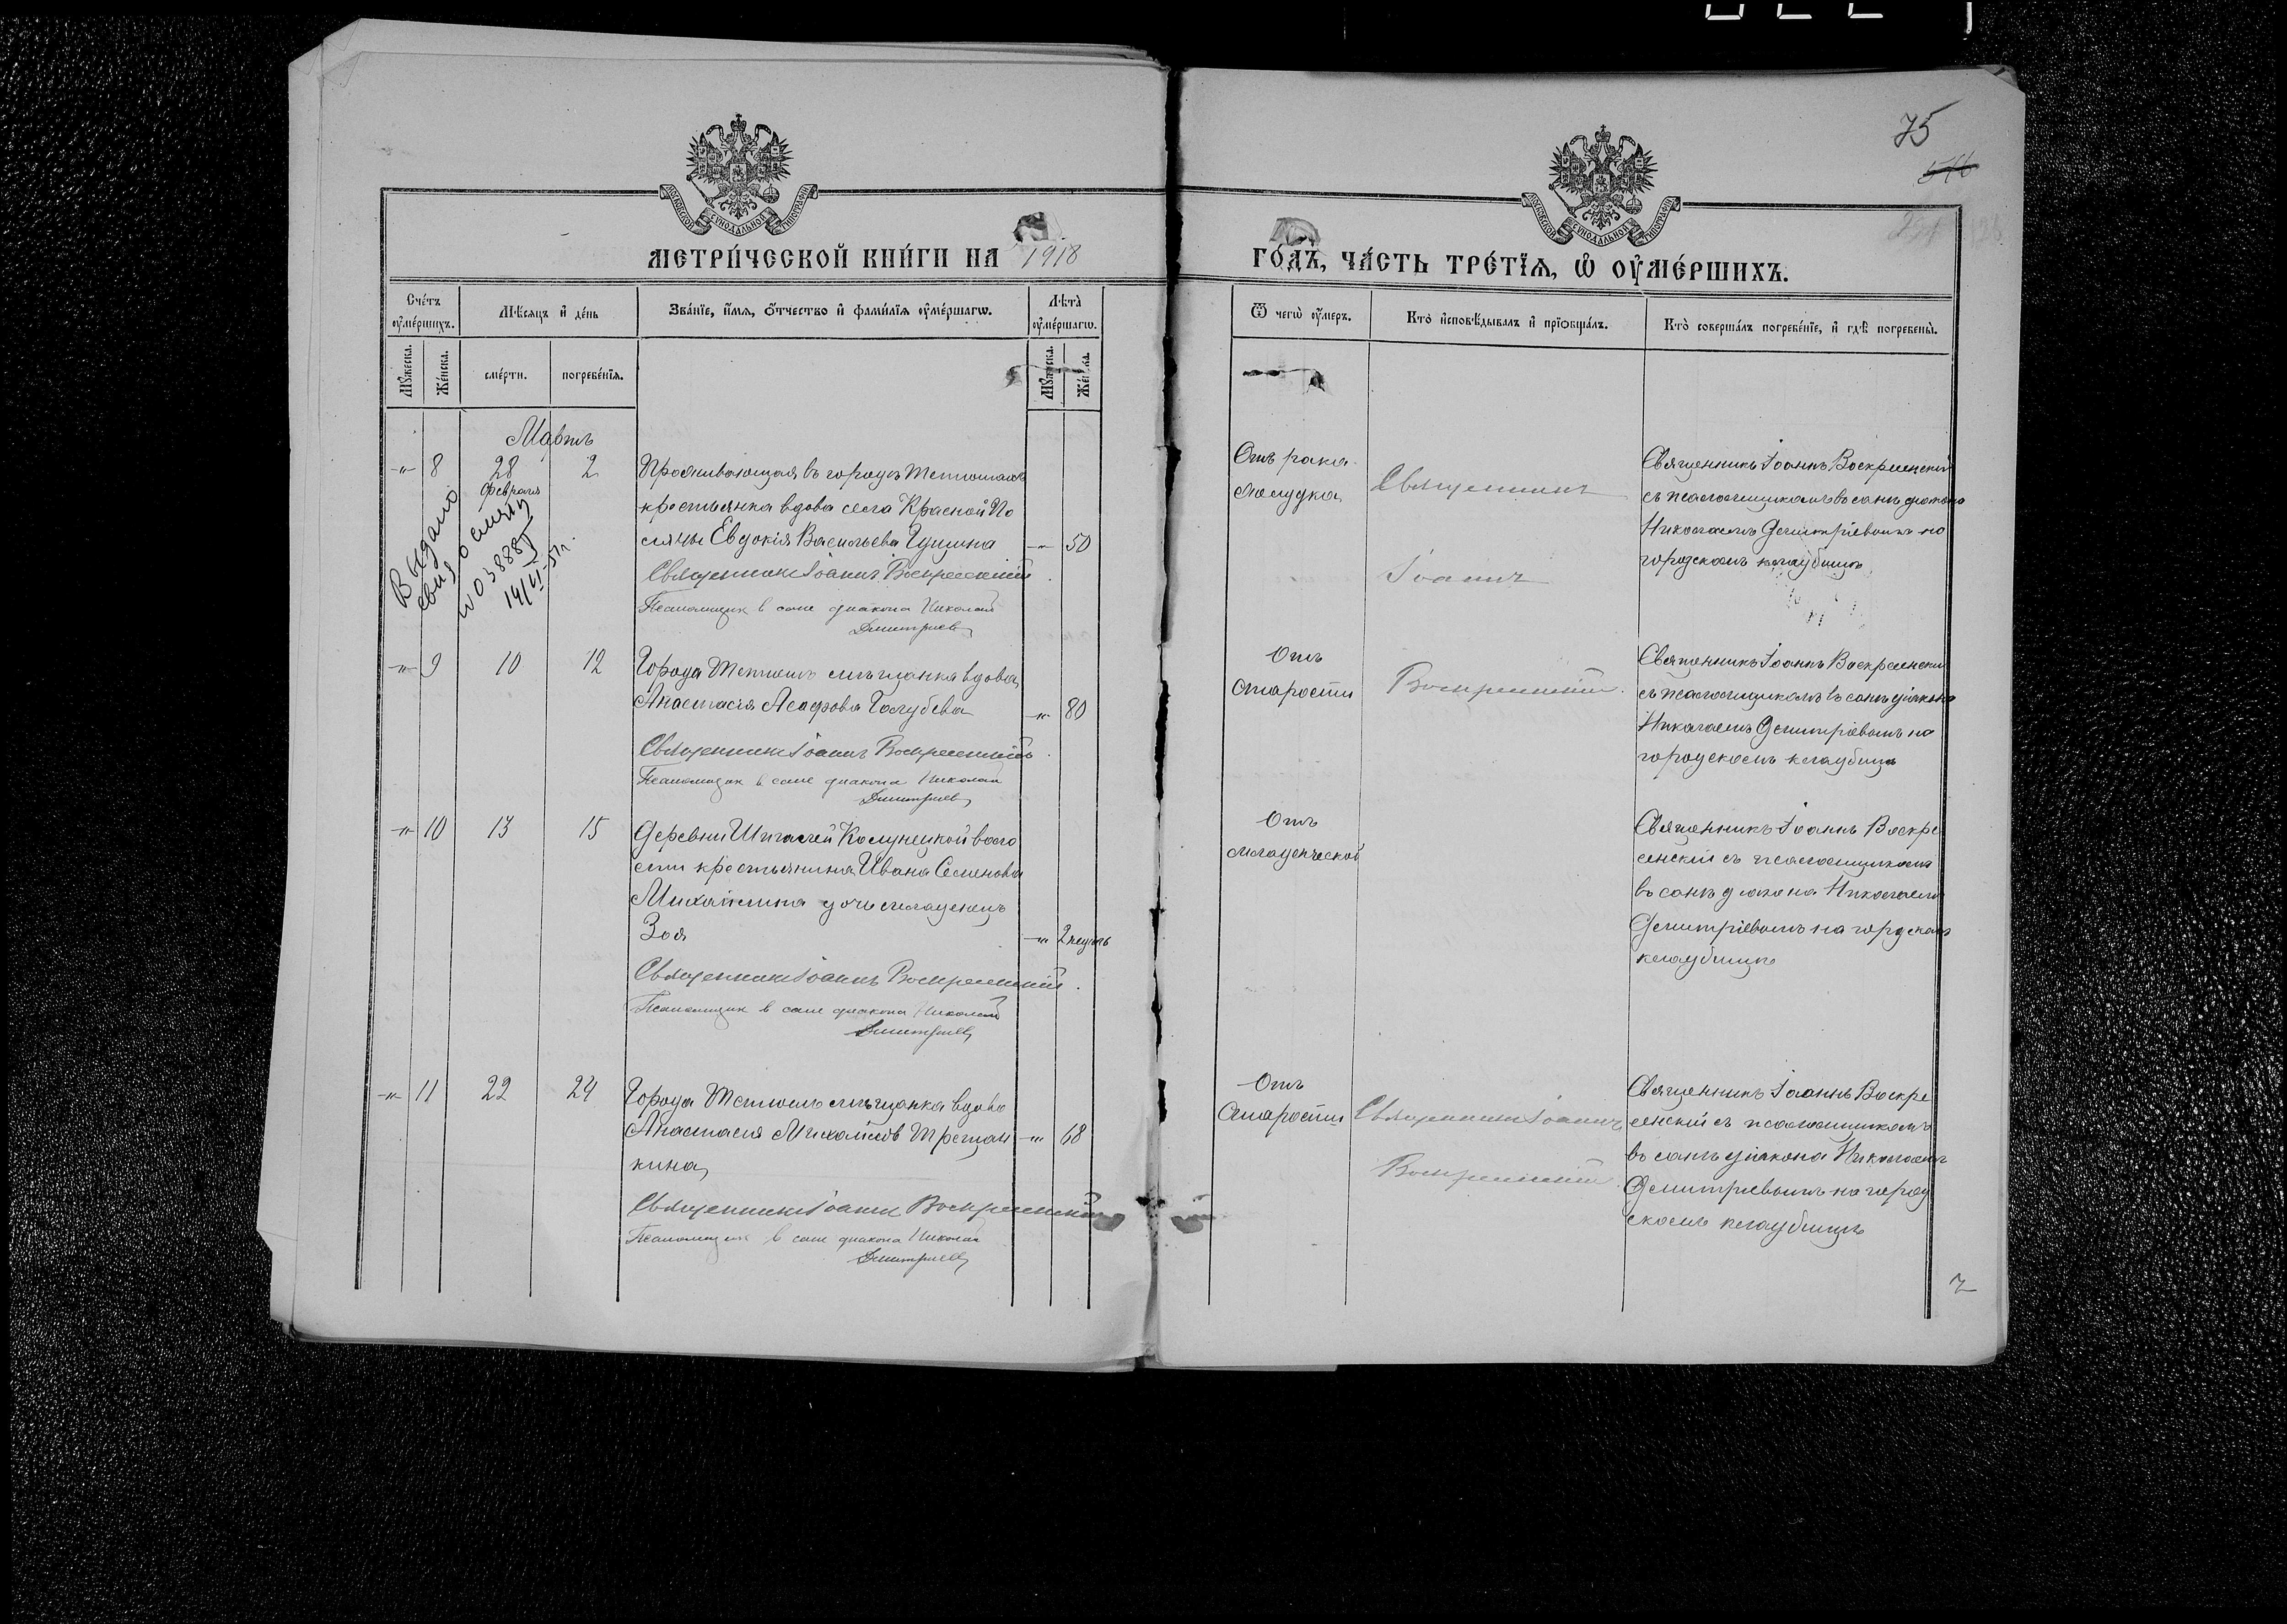 75
546
МОСКОВСКОЙ СѴНОДАЛЬНОЙ ТИПОГРАФІИ
МОСКОВСКОЙ СѴНОДАЛЬНОЙ ТИПОГРАФІИ
МЕТРИ́ЧЕСКОЙ КНИ́ГИ НА 1918
ГО́ДЪ, ЧА́СТЬ ТРЕ́ТІѦ, Ѡ҆ ОУ҆МЕ́РШИХЪ.
Сче́тъ оу҆ме́ршихъ.
Мѣ́сяцъ и҆ де́нь
Зва́нїе, и҆́мя, ѻ҆́тчество и҆ фами́лїя оу҆ме́ршагѡ.
Лѣ̀та оу҆ме́ршагѡ.
Ѿ чегѡ̀ оу҆́меръ.
Кто̀ и҆сповѣ́дывалъ и҆ прїѡбща́лъ.
Кто̀ соверша́лъ погребе́нїе, и҆ гдѣ̀ погребены̀.
Мꙋ́жеска.
Же́нска.
сме́рти.
погребе́нїѧ.
Мꙋ́жеска.
Же́нска.
Мартъ
-"- 8 28 Февраля 2
Проживающая въ городѣ Тетюшахъ
крестьянка вдова села Красной По
ляны Евдокія Васильева Гущина -"- 50
Священникъ Іоаннъ Воскресенскій
Псаломщик в сане диакона Николай
Дмитриев
Выдано
свид о смерти
14/VI-57 г.
Отъ рака
желудка
Священникъ
Іоаннъ
Священникъ Іоаннъ Воскресенскій
съ псаломщикомъ въ санѣ діакона
Николаемъ Димитріевымъ на
городскомъ кладбищѣ
-"- 9 10 12
Города Тетюшъ мѣщанка вдова
Анастасія Асафова Голубева -"- 80
Священникъ Іоаннъ Воскресенскій
Псаломщик в сане диакона Николай
Дмитриев
Отъ
старости
Воскресенскій
Священникъ Іоаннъ Воскресенскій
съ псаломщикомъ въ санѣ діакона
Николаемъ Димитріевымъ на
городскомъ кладбищѣ
-"- 10 13 15
Деревни Шигалей Колунецкой воло
сти крестьянина Ивана Семенова
Михайлина дочь младенецъ
Зоя -"- 2 недѣль
Священникъ Іоаннъ Воскресенскій
Псаломщик в сане диакона Николай
Дмитриев
Отъ
младенческой
Священникъ Іоаннъ Воскре
сенскій съ псаломщикомъ
въ санѣ діакона Николаемъ
Димитріевымъ на городскомъ
кладбищѣ
-"- 11 22 24
Города Тетюшъ мѣщанка вдова
Анастасія Михайлов -"- 68
кина
Священникъ Іоаннъ Воскресенскій
Псаломщик в сане диакона Николай
Дмитриев
Отъ
старости
Священникъ Іоаннъ
Воскресенскій
Священникъ Іоаннъ Воскре
сенскій съ псаломщикомъ
въ санѣ діакона Николаемъ
Димитріевымъ на город
скомъ кладбищѣ